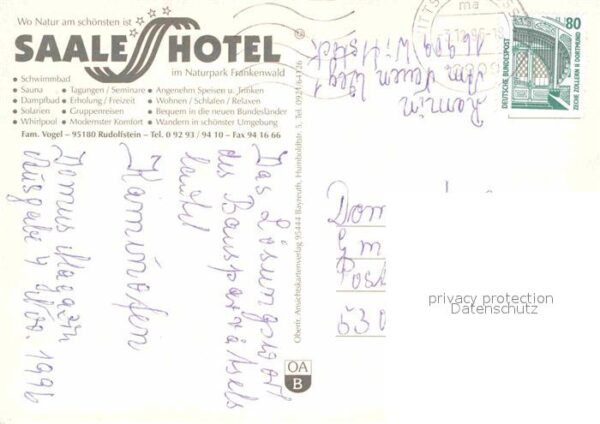 Wo Natur am schönsten ist
SAALE HOTEL
im Naturpark Frankenwald
• Schwimmbad
• Sauna • Tagungen / Seminare • Angenehm Speisen u. Trinken
• Dampfbad • Erholung / Freizeit • Wohnen / Schlafen / Relaxen
• Solarien • Gruppenreisen • Bequem in die neuen Bundesländer
• Whirlpool • Modernster Komfort • Wandern in schönster Umgebung
Fam. Vogel – 95180 Rudolfstein – Tel. 0 92 93 / 94 10 – Fax 94 16 66
Das Lösungswort
des Bausparrätsels
lautet
Kaminofen
Domus Magazin
Ausgabe 4 Nov. 1996
Oberfr. Ansichtskartenverlag 95444 Bayreuth, Humboldtstr. 5, Tel. 0921/64126
OA
B
Am Neuen Weg 1
16909 Wittstock
80
DEUTSCHE BUNDESPOST
ZECHE ZOLLERN II DORTMUND
Dom
Gm
Post
530
privacy protection
Datenschutz